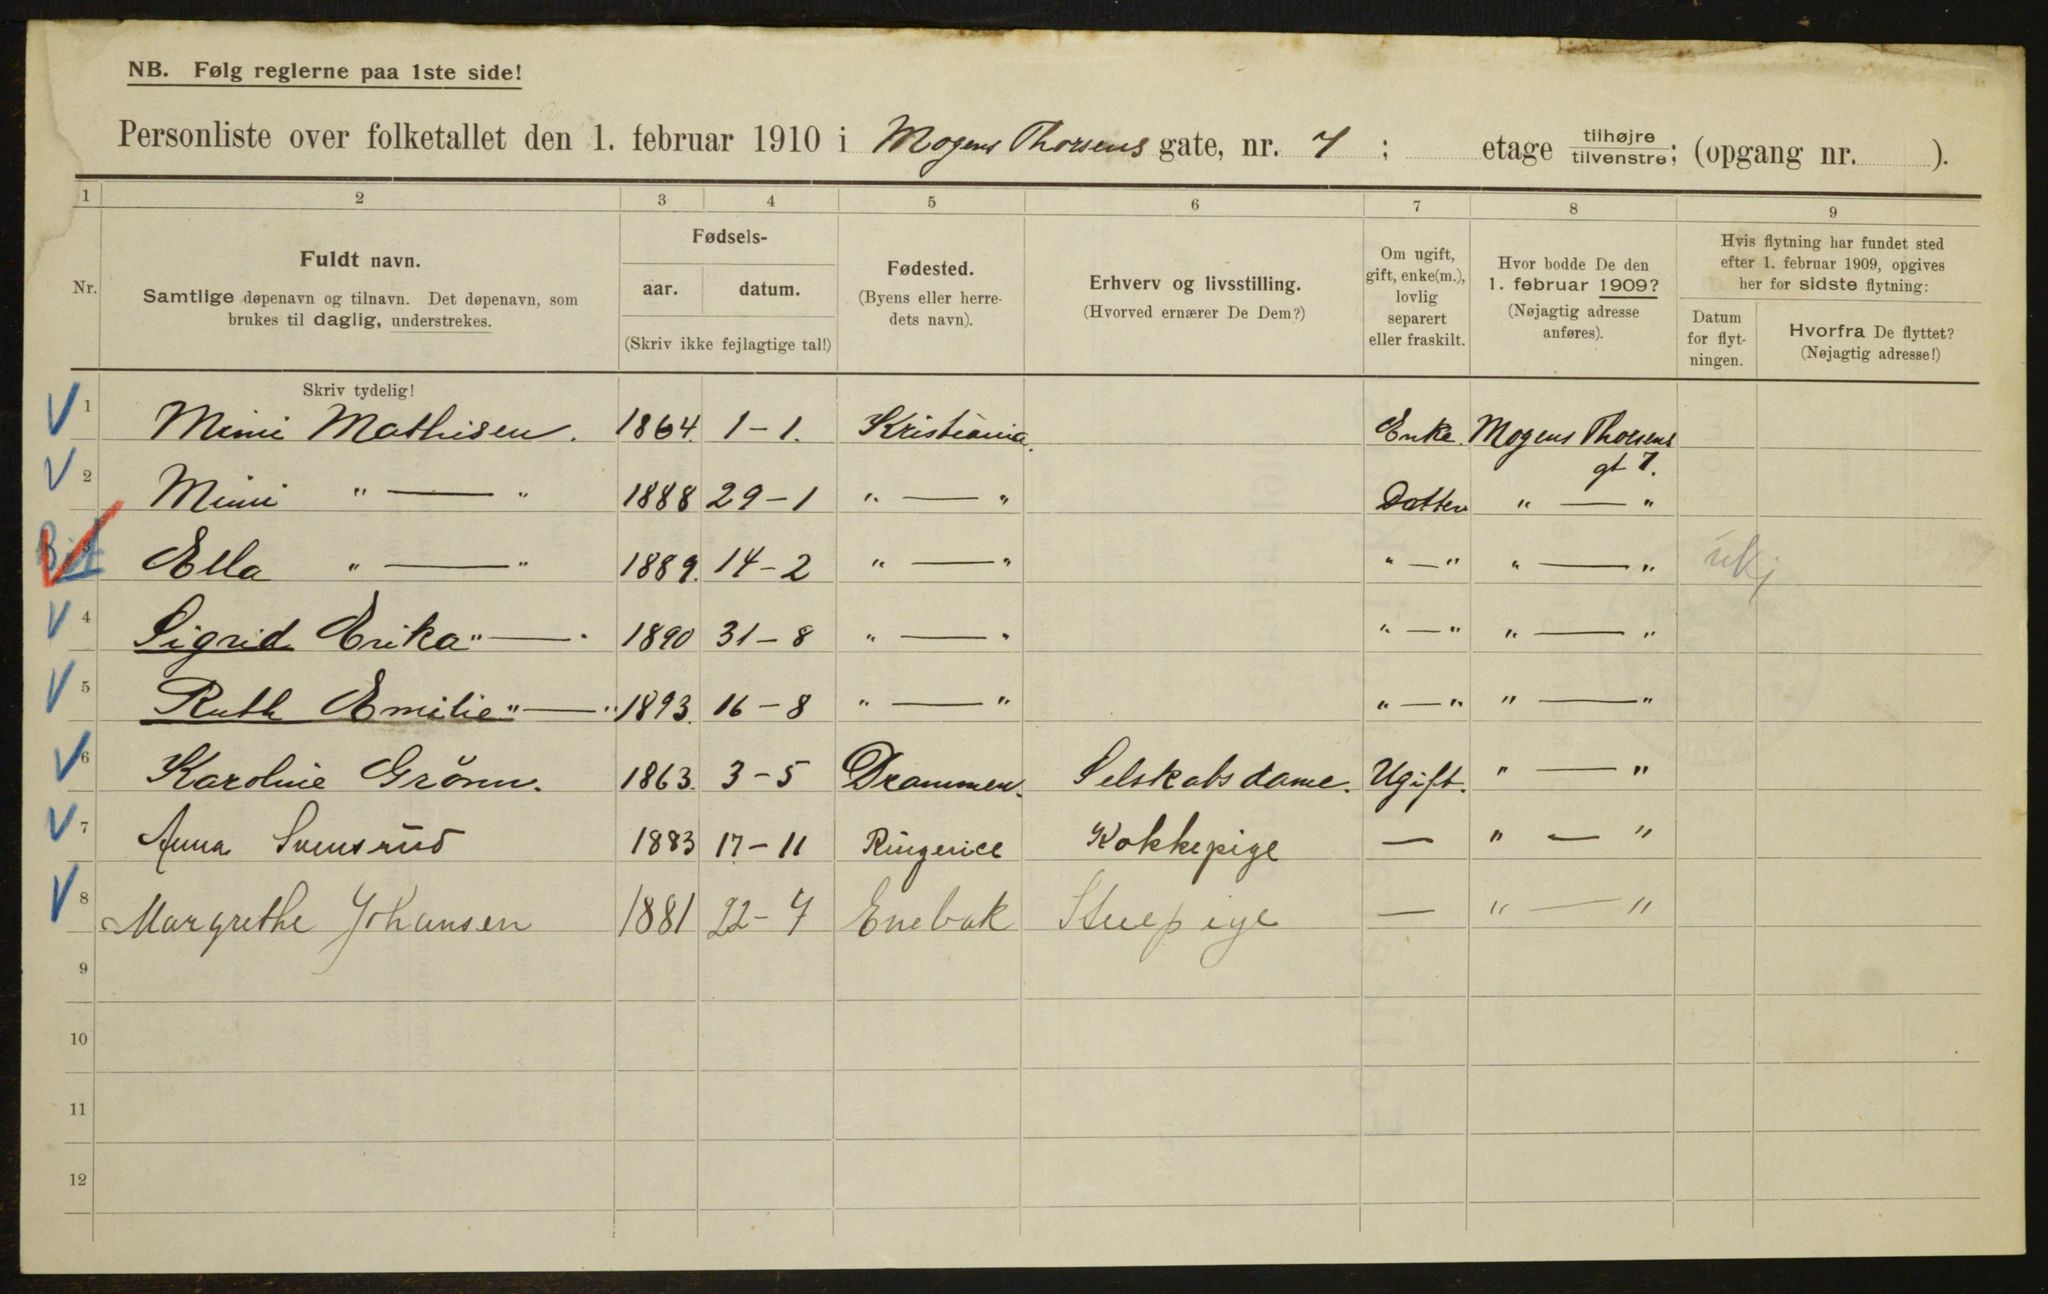 NB. Følg reglerne paa 1ste side!
Personliste over folketallet den 1. februar 1910 i Mogens Thorsens gate, nr. 7 ; etage tilhøjre tilvenstre; (opgang nr. ).
1 2 3 4 5 6 7 8 9
Nr. Fuldt navn. Samtlige døpenavn og tilnavn. Det døpenavn, som brukes til daglig, understrekes.
Fødsels- aar. datum. (Skriv ikke fejlagtige tal!)
Fødested. (Byens eller herredets navn).
Erhverv og livsstilling. (Hvorved ernærer De Dem?)
Om ugift, gift, enke(m.), lovlig separert eller fraskilt.
Hvor bodde De den 1. februar 1909? (Nøjagtig adresse anføres).
Hvis flytning har fundet sted efter 1. februar 1909, opgives her for sidste flytning:
Datum for flytningen. Hvorfra De flyttet? (Nøjagtig adresse!)
Skriv tydelig!
1 Mimi Mathisen. 1864. 1-1. Kristiania. Enke. Mogens Thorsens gt 7.
2 Mimi " — " 1888 29-1 " — " Datter " — "
3 Ella " — " 1889. 14-2 " — " " — " " — "
4 Sigrid Erika " — " 1890 31-8 " — " " — " " — "
5 Ruth Emilie " — " 1893. 16-8 " — " " — " " — "
6 Karoline Grönn. 1863. 3-5 Drammen. Selskabsdame. Ugift. " — "
7 Anna Svensrud 1883 17-11 Ringerice Kokkepige — " — "
8 Margrethe Johansen 1881 22-7 Enebak Stuepige — " — "
9
10
11
12